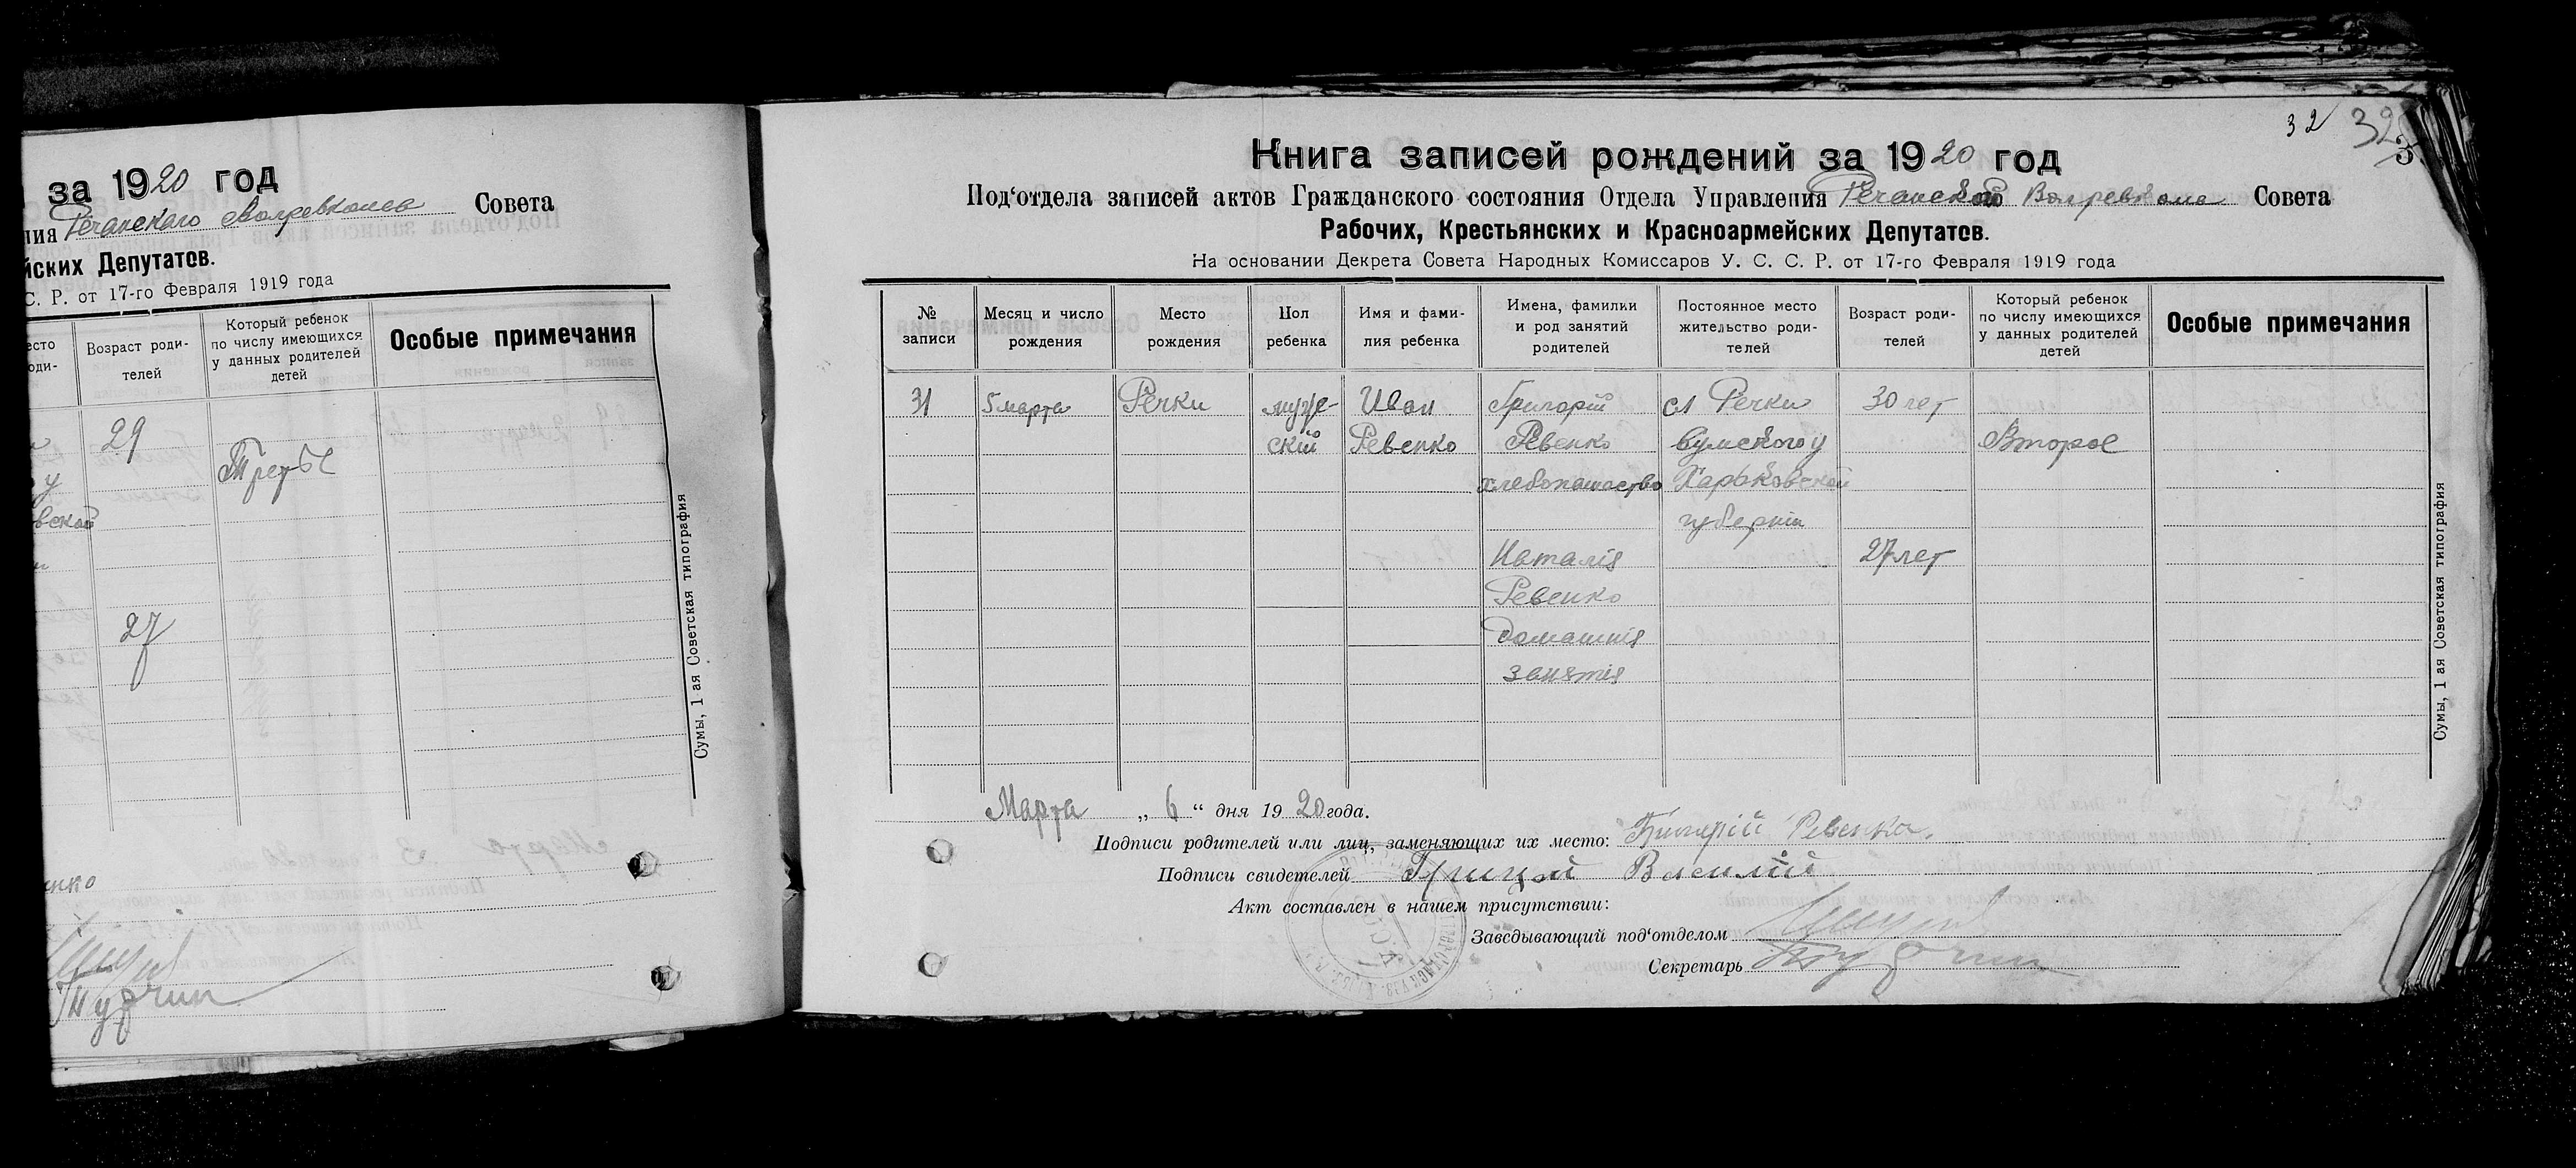 за 1920 год
ния Речанскаго Волревкома Совета
йских Депутатов.
С. Р. от 17-го Февраля 1919 года
есто
оди-
Возраст роди-
телей
Который ребенок
по числу имеющихся
у данных родителей
детей
Особые примечания
29
Третье
у
вской
27
нко
Сумы, 1-ая Советская типография
32 32
3
Книга записей рождений за 1920 год
Под'отдела записей актов Гражданского состояния Отдела Управления Речанского Волревкома Совета
Рабочих, Крестьянских и Красноармейских Депутатов.
На основании Декрета Совета Народных Комиссаров У. С. С. Р. от 17-го Февраля 1919 года
№
записи
Месяц и число
рождения
Место
рождения
Пол
ребенка
Имя и фами-
лия ребенка
Имена, фамилии
и род занятий
родителей
Постоянное место
жительство роди-
телей
Возраст роди-
телей
Который ребенок
по числу имеющихся
у данных родителей
детей
Особые примечания
31 5 марта Речки муже- Иван Григорій сл Речки 30 лет
скій Ревенко Ревенко Сумского у Второе
хлебопашество Харьковской
губерніи
Наталія 27 лет
Ревенко
Домашнія
занятія
Марта „ 6 “ дня 1920 года.
Подписи родителей или лиц, заменяющих их место: Григорій Ревенко.
Подписи свидетелей Грицай Василій
Акт составлен в нашем присутствии:
Заведывающий под'отделом
Секретарь
Сумы, 1-ая Советская типография